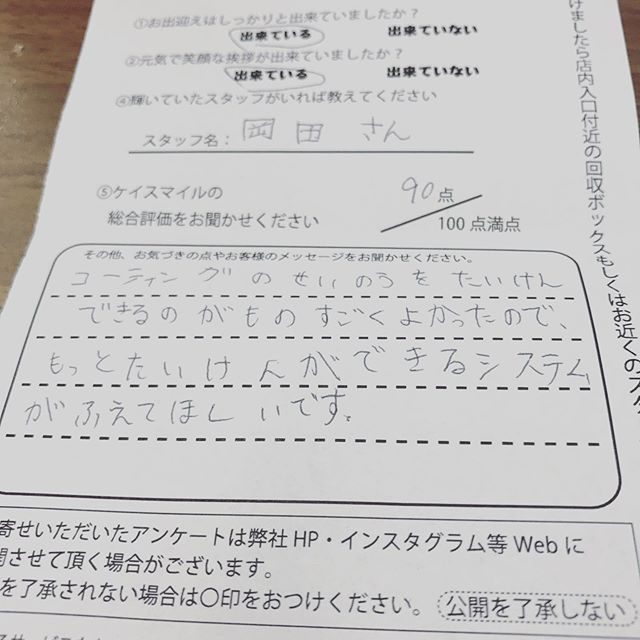 ①お出迎えはしっかりと出来ていましたか？
出来ている 出来ていない
③元気で笑顔な挨拶が出来ていましたか？
出来ている 出来ていない
④輝いていたスタッフがいれば教えてください
スタッフ名： 岡田 さん
⑤ケイスマイルの
総合評価をお聞かせください
90点
100点満点
その他、お気づきの点やお客様のメッセージをお聞かせください。
コーティングのせいのうをたいけん
できるのがものすごくよかったので、
もっとたいけんができるシステム
がふえてほしいです。
寄せいただいたアンケートは弊社HP・インスタグラム等Webに
開させて頂く場合がございます。
を了承されない場合は〇印をおつけください。 公開を了承しない
けましたら店内入口付近の回収ボックスもしくはお近くのスタ